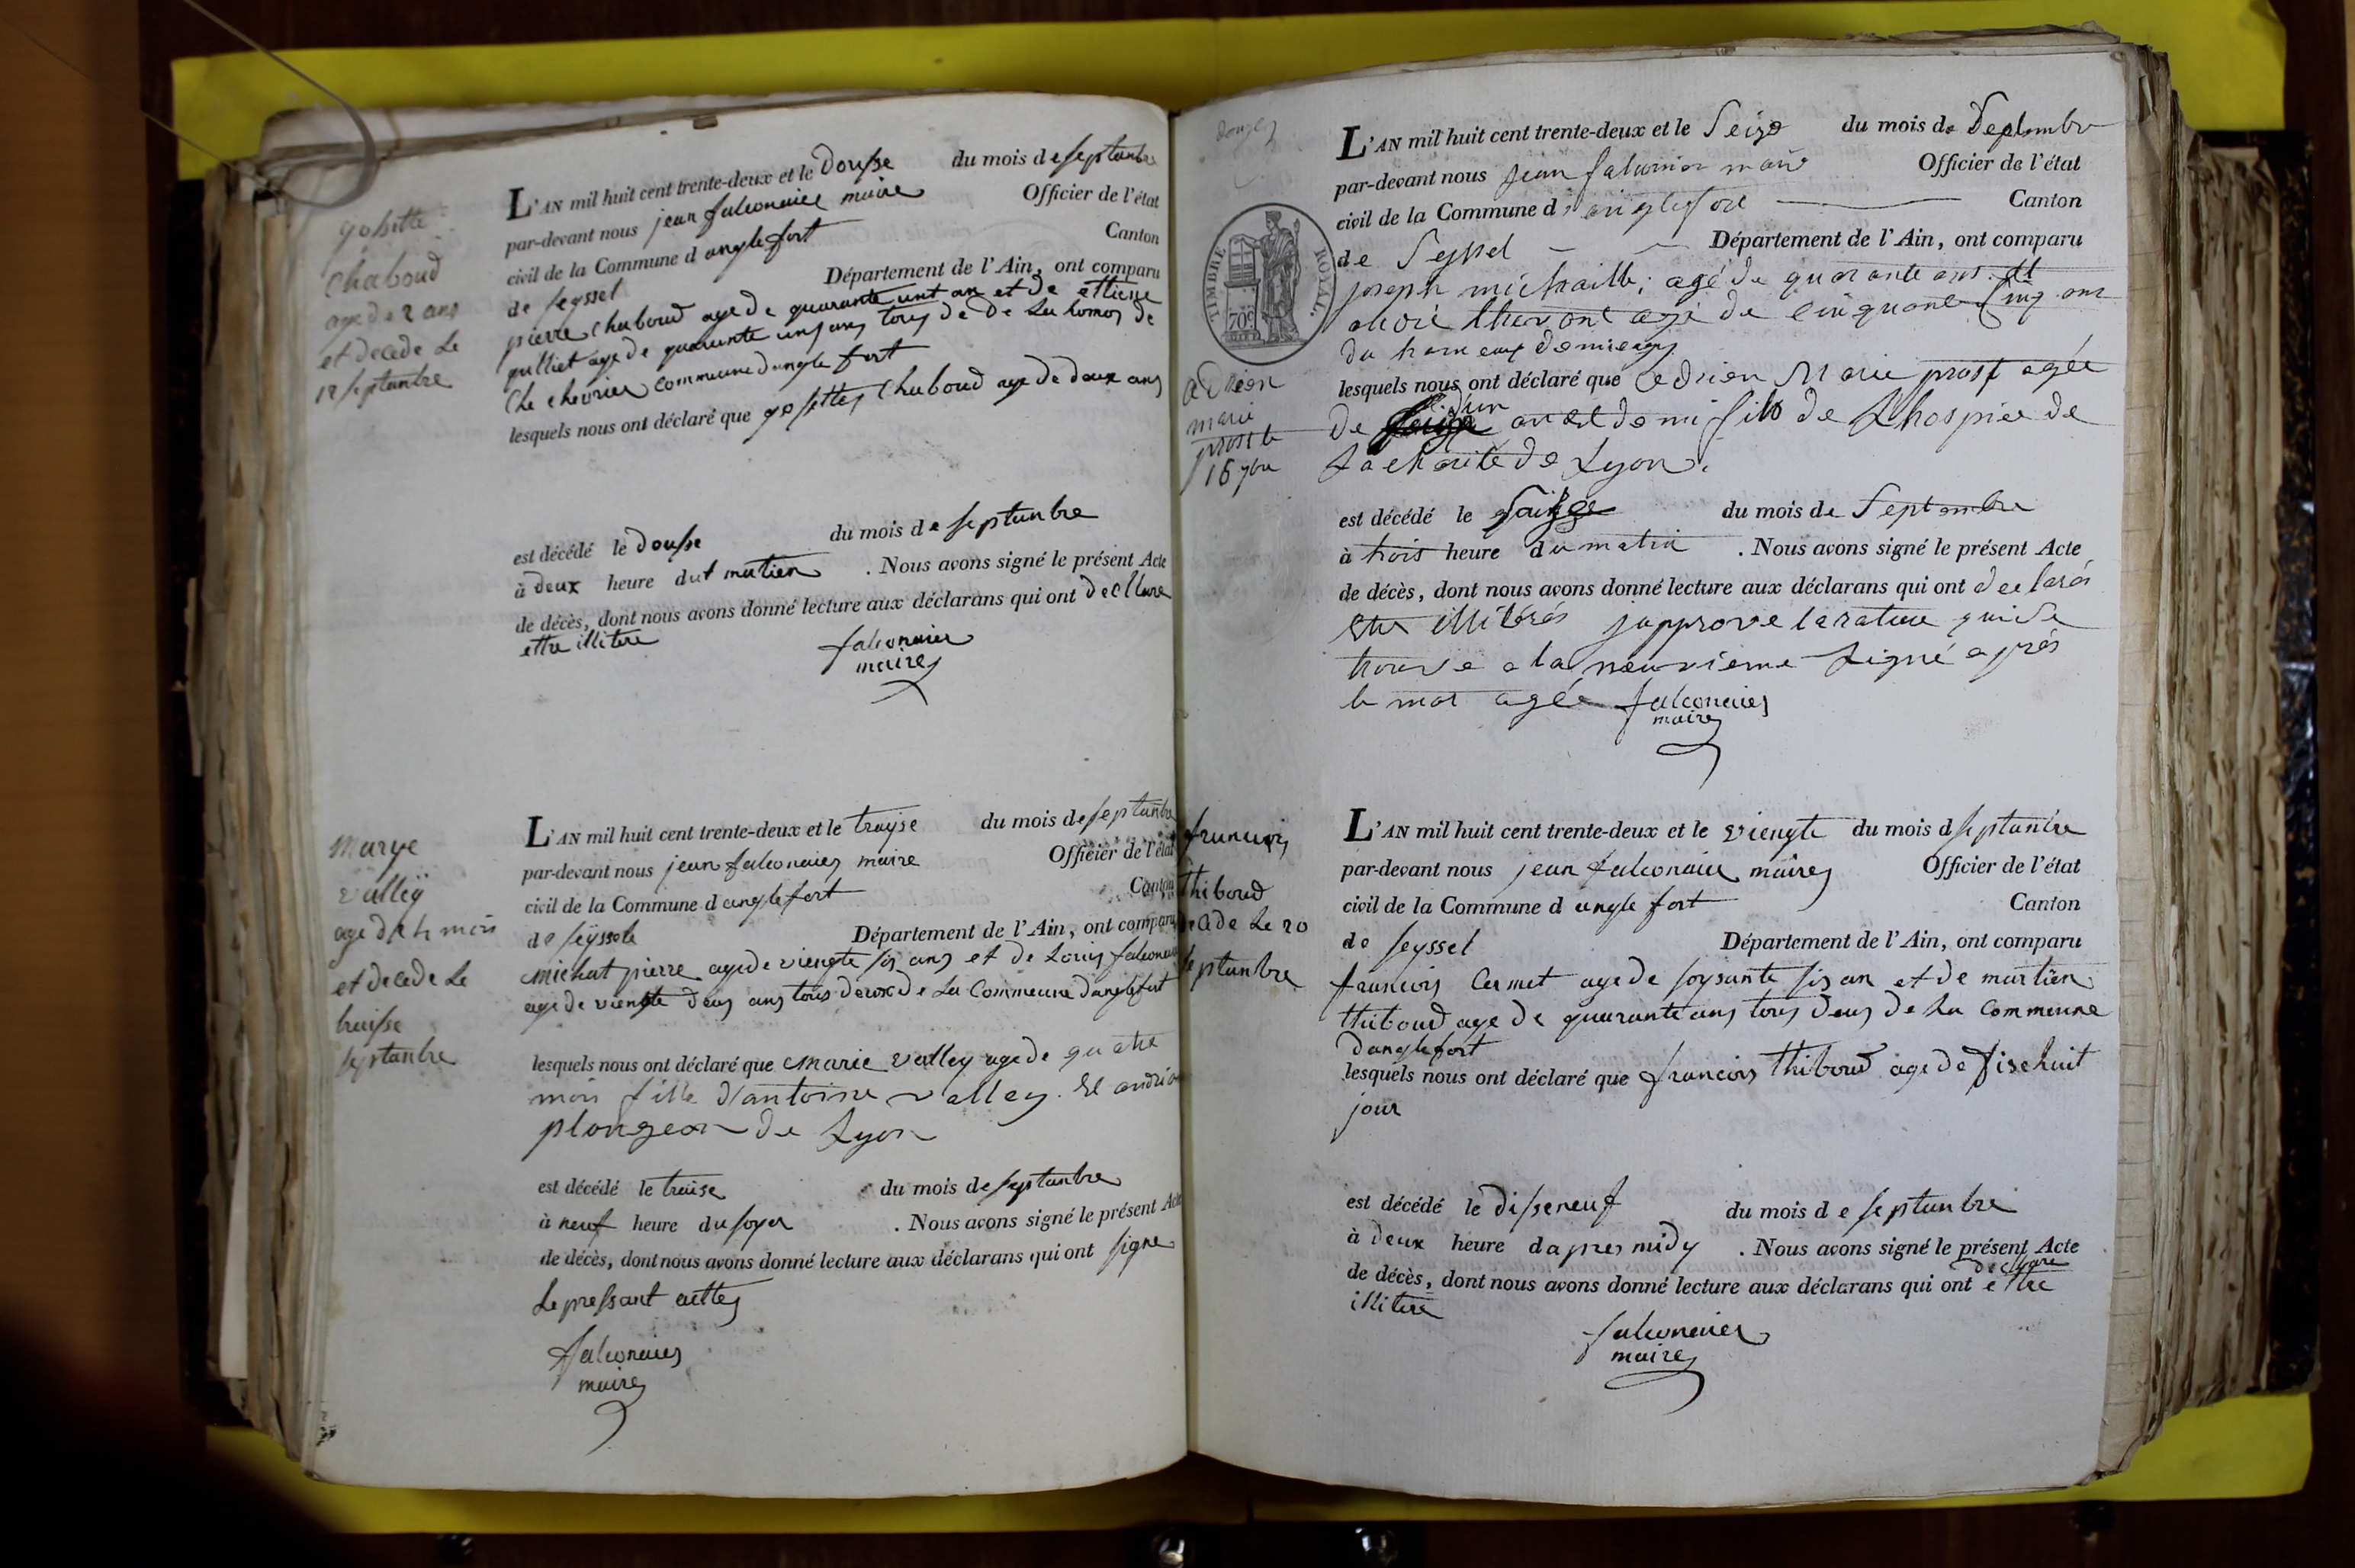 gosette
chaboud
age de 2 ans
et decede Le
12 septanbre
L'AN mil huit cent trente-deux et le dousse du mois de septanbre
par-devant nous jean falconnier maire Officier de l'état
civil de la Commune d anglefort Canton
de seyssel Département de l'Ain, ont comparu
pierre chaboud age de quarante unt an et de ettiene
gulliet age de quarante unt ans tous de de La homos de
Che chevrier commeune danglefort
lesquels nous ont déclaré que gosettes Chaboud age de deux ans
est décédé le dousse du mois de septanbre
à deux heure dut matien . Nous avons signé le présent Acte
de décès, dont nous avons donné lecture aux déclarans qui ont decllare
ettre illitere falconnier
maire
marye
valley
age de 4 mois
et decede Le
traisse
septanbre
L'AN mil huit cent trente-deux et le trayse du mois de septanbre
par-devant nous jean falconnier maire Officier de l'état
civil de la Commune d anglefort Canton
de seyssele Département de l'Ain, ont comparu
michat pierre age de viengte sis ans et de Louis falconnier
age de viengte deus ans tous deux de La Commeune danglefort
lesquels nous ont déclaré que marie valley age de quatre
mois fille d'antoine valley. Et
plongeon de Lyon
est décédé le traise du mois de septanbre
à neuf heure du soyer . Nous avons signé le présent Acte
de décès, dont nous avons donné lecture aux déclarans qui ont signe
Le pressant acttes
falconnier
maire
L'AN mil huit cent trente-deux et le Seize du mois de Septembre
par-devant nous jean falconnier maire Officier de l'état
civil de la Commune d'anglefort Canton
de Seyssel Département de l'Ain, ont comparu
TIMBRE ROYAL
70c
joseph michaille; agé de quarante ans. Et
agé de cinquante cinq ans
du hameaux
adrien
marie
prost le
16 7bre
lesquels nous ont déclaré que adrien Marie prost agée
de d'un an et demi fils de L'hospice de
La charité de Lyon.
est décédé le saizze du mois de Septembre
à trois heure du matin . Nous avons signé le présent Acte
de décès, dont nous avons donné lecture aux déclarans qui ont declarés
etre illiterés japprove la rature qui se
trouve a la neuvieme Ligne après
le mot agée falconnier
maire
francois
thiboud
cede Le 20
septanbre
L'AN mil huit cent trente-deux et le viengte du mois d septanbre
par-devant nous jean falconnier maire Officier de l'état
civil de la Commune d angle fort Canton
de seyssel Département de l'Ain, ont comparu
francois Carmet age de soysante sis an et de martien
thiboud age de quarante ans tous deus de La Commeune
danglefort
lesquels nous ont déclaré que francois thiboud age de disehuit
jour
est décédé le disseneuf du mois de septanbre
à deux heure dapres midy . Nous avons signé le présent Acte
declare
de décès, dont nous avons donné lecture aux déclarans qui ont ettre
illitere
falconnier
maire